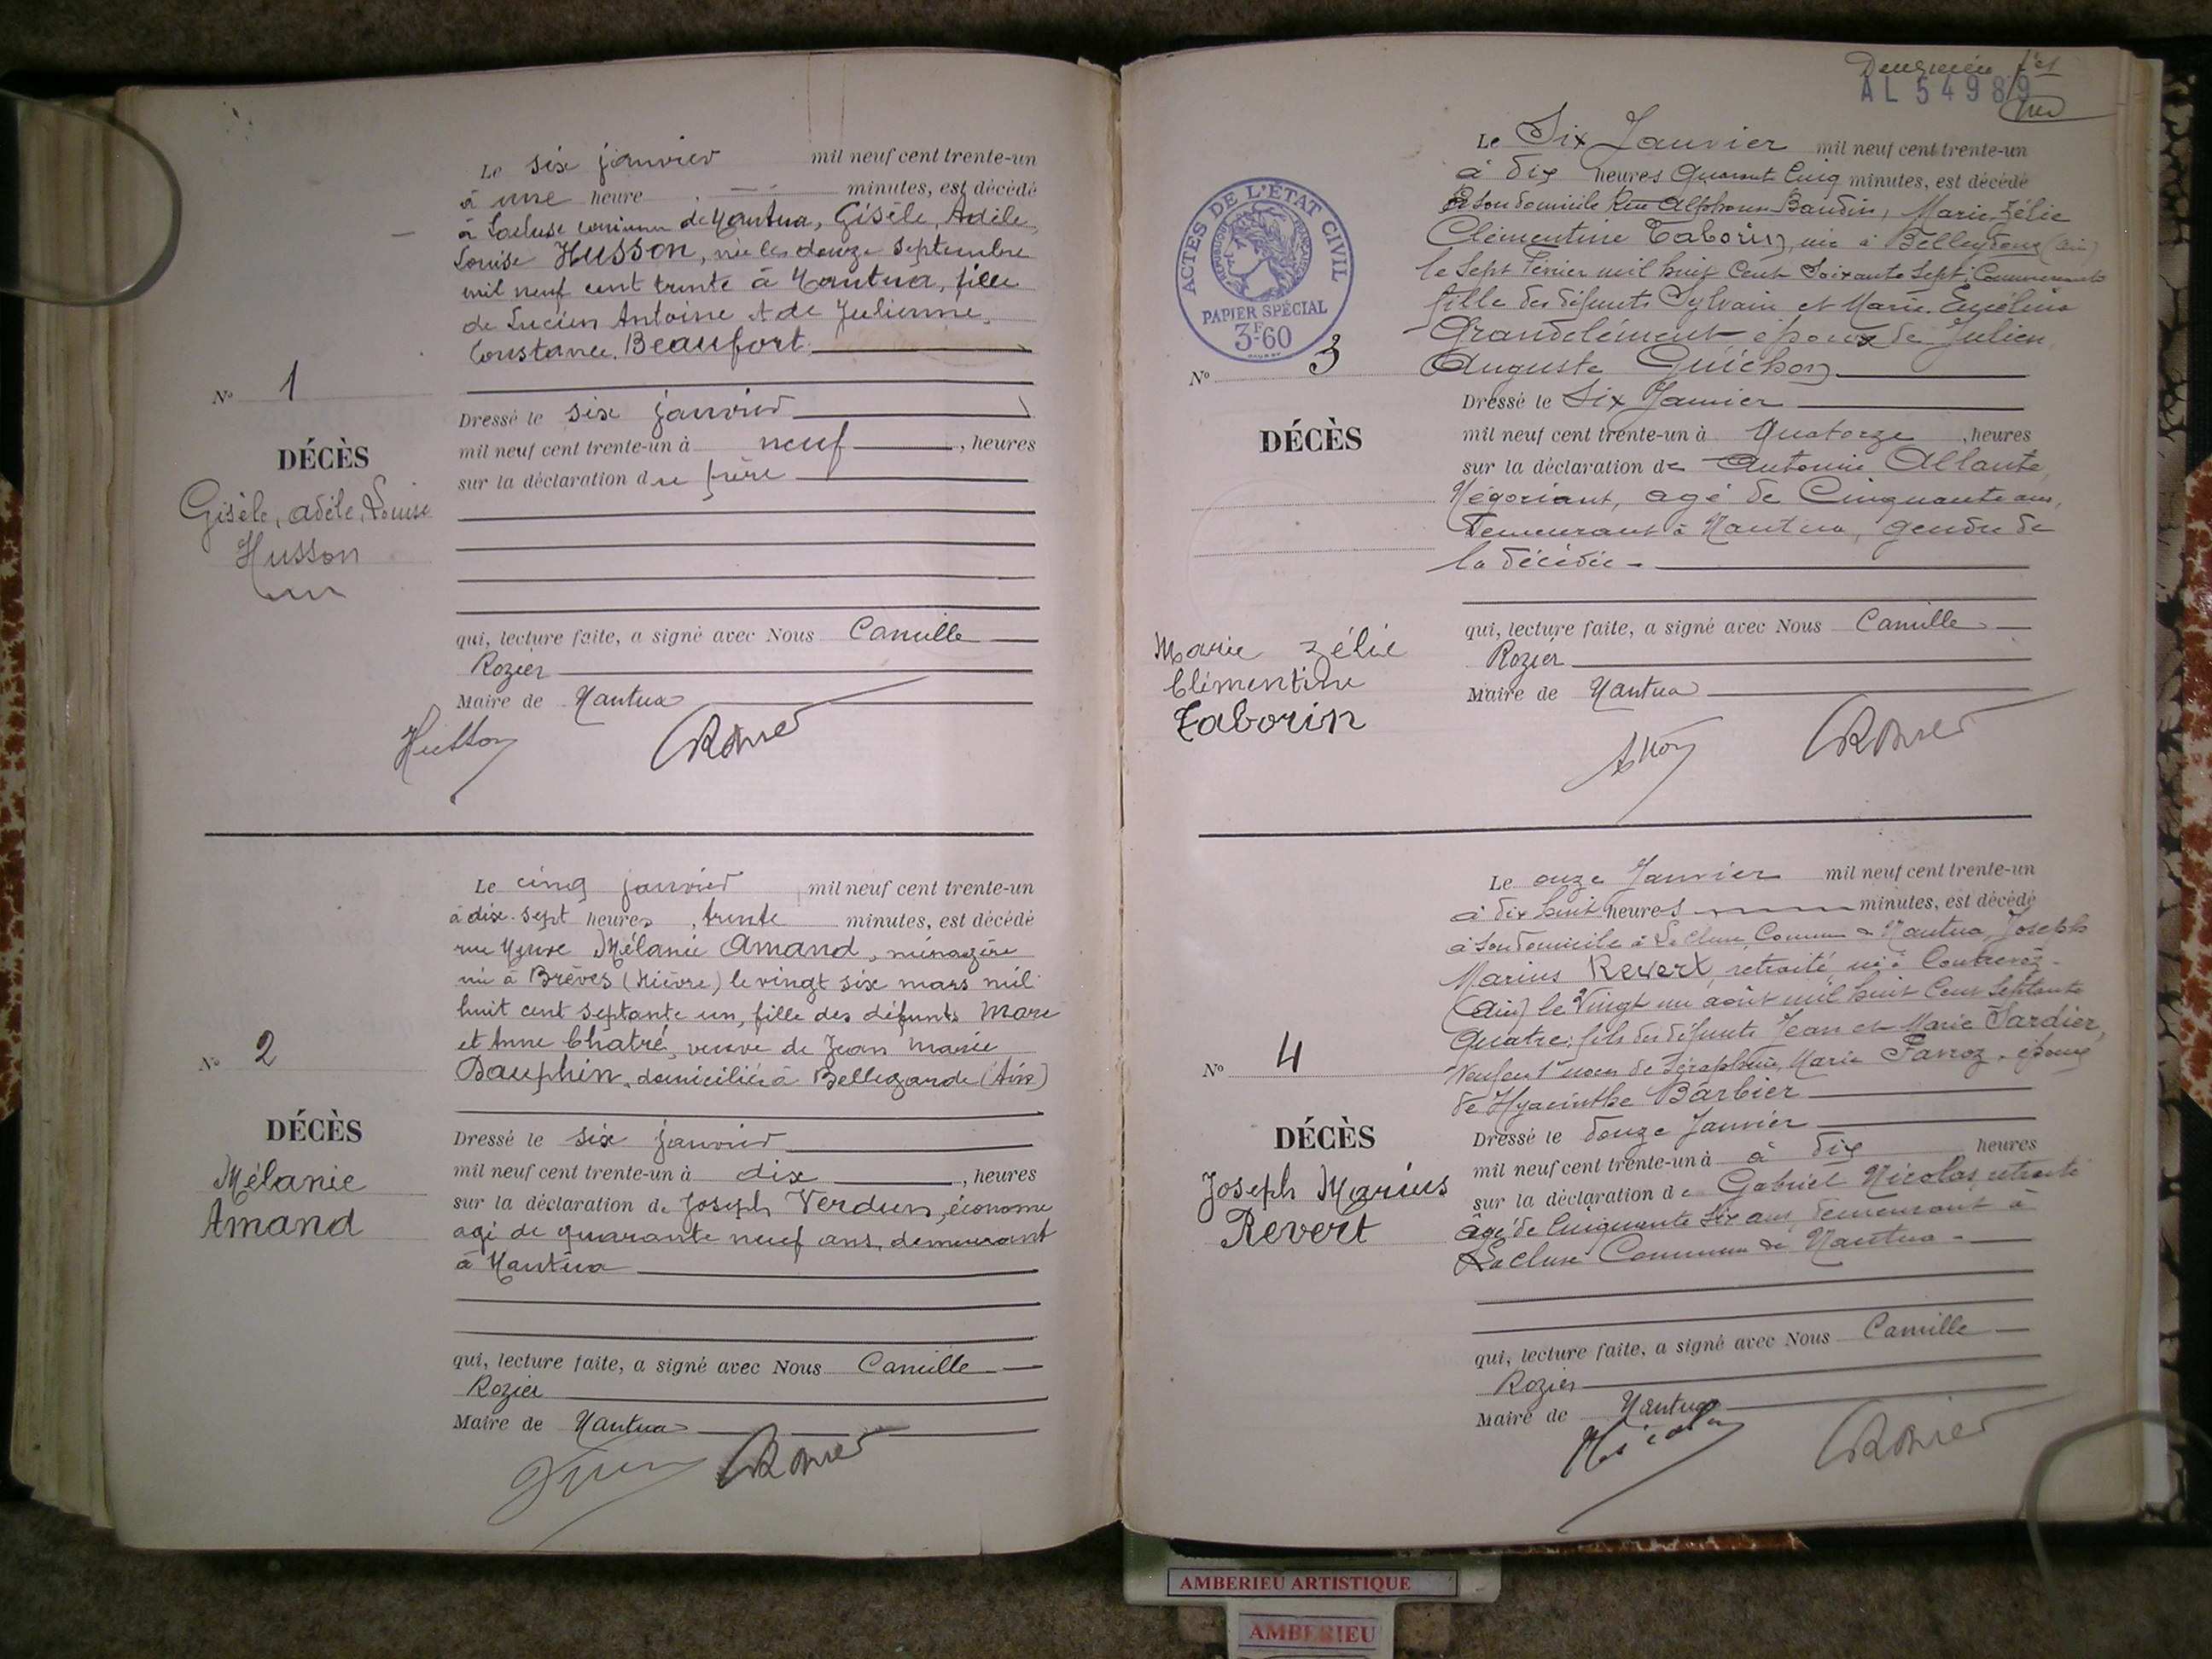 Le six janvier mil neuf cent trente-un
à une heure minutes, est décédé
à Lacluse commune de Nantua, Gisèle, Adèle,
Louise Husson, née les douze septembre
mil neuf cent trente à Nantua, fille
de Lucien Antoine et de Julienne,
Constance, Beaufort
N° 1
DÉCÈS
Gisèle, Adèle, Louise
Husson
Dressé le six janvier
mil neuf cent trente-un à neuf, heures
sur la déclaration du père
qui, lecture faite, a signé avec Nous Camille
Rozier
Maire de Nantua
Husson Rozier
Le cinq janvier mil neuf cent trente-un
à dix-sept heures, trente minutes, est décédé
rue Neuve Mélanie Amand, ménagère
née à Brèves (Nièvre) le vingt six mars mil
huit cent septante un, fille des défunts Marc
et Anne Chatré, veuve de Jean Marie
Dauphin, domiciliée à Bellegarde (Ain)
N° 2
DÉCÈS
Mélanie
Amand
Dressé le six janvier
mil neuf cent trente-un à dix, heures
sur la déclaration de Joseph Verdun, économe
agé de quarante neuf ans, demeurant
à Nantua
qui, lecture faite, a signé avec Nous Camille
Rozier
Maire de Nantua
Rozier
AL 54989
ACTES DE L'ÉTAT CIVIL
RÉPUBLIQUE FRANÇAISE
PAPIER SPÉCIAL
3F60
Le Six Janvier mil neuf cent trente-un
à dix heures Quarante Cinq minutes, est décédé
à son domicile Rue Alphonse Baudin, Marie, Zélie
Clémentine Taborin, née à Belleydoux (Ain)
le Sept Février mil huit Cent Soixante Sept
fille des défunts Sylvain et Marie
Grandclément épouse de Julien,
Auguste Guichon
N° 3
DÉCÈS
Marie Zélie
Clémentine
Taborin
Dressé le Six Janvier
mil neuf cent trente-un à Quatorze, heures
sur la déclaration de Antonin
Négociant, agé de Cinquante ans,
demeurant à Nantua, gendre de
la décédée
qui, lecture faite, a signé avec Nous Camille
Rozier
Maire de Nantua
Rozier
Le onze Janvier mil neuf cent trente-un
à dix huit heures minutes, est décédé
à son domicile à La Cluse, Commune de Nantua, Joseph
Marius Revert, retraité né à Contrevoz
(Ain) le Vingt un août mil huit Cent Septante
Quatre, fils des défunts Jean et Marie Tardier,
Veuf en 1res noces de Séraphine, Marie Favroz, époux
de Hyacinthe Barbier
N° 4
DÉCÈS
Joseph Marius
Revert
Dressé le douze Janvier
mil neuf cent trente-un à à dix heures
sur la déclaration de Gabriel Nicolas, retraité
âgé de Cinquante Six ans, demeurant à
La Cluse Commune de Nantua
qui, lecture faite, a signé avec Nous Camille
Rozier
Maire de Nantua
Nicolas Rozier
AMBERIEU ARTISTIQUE
AMBERIEU